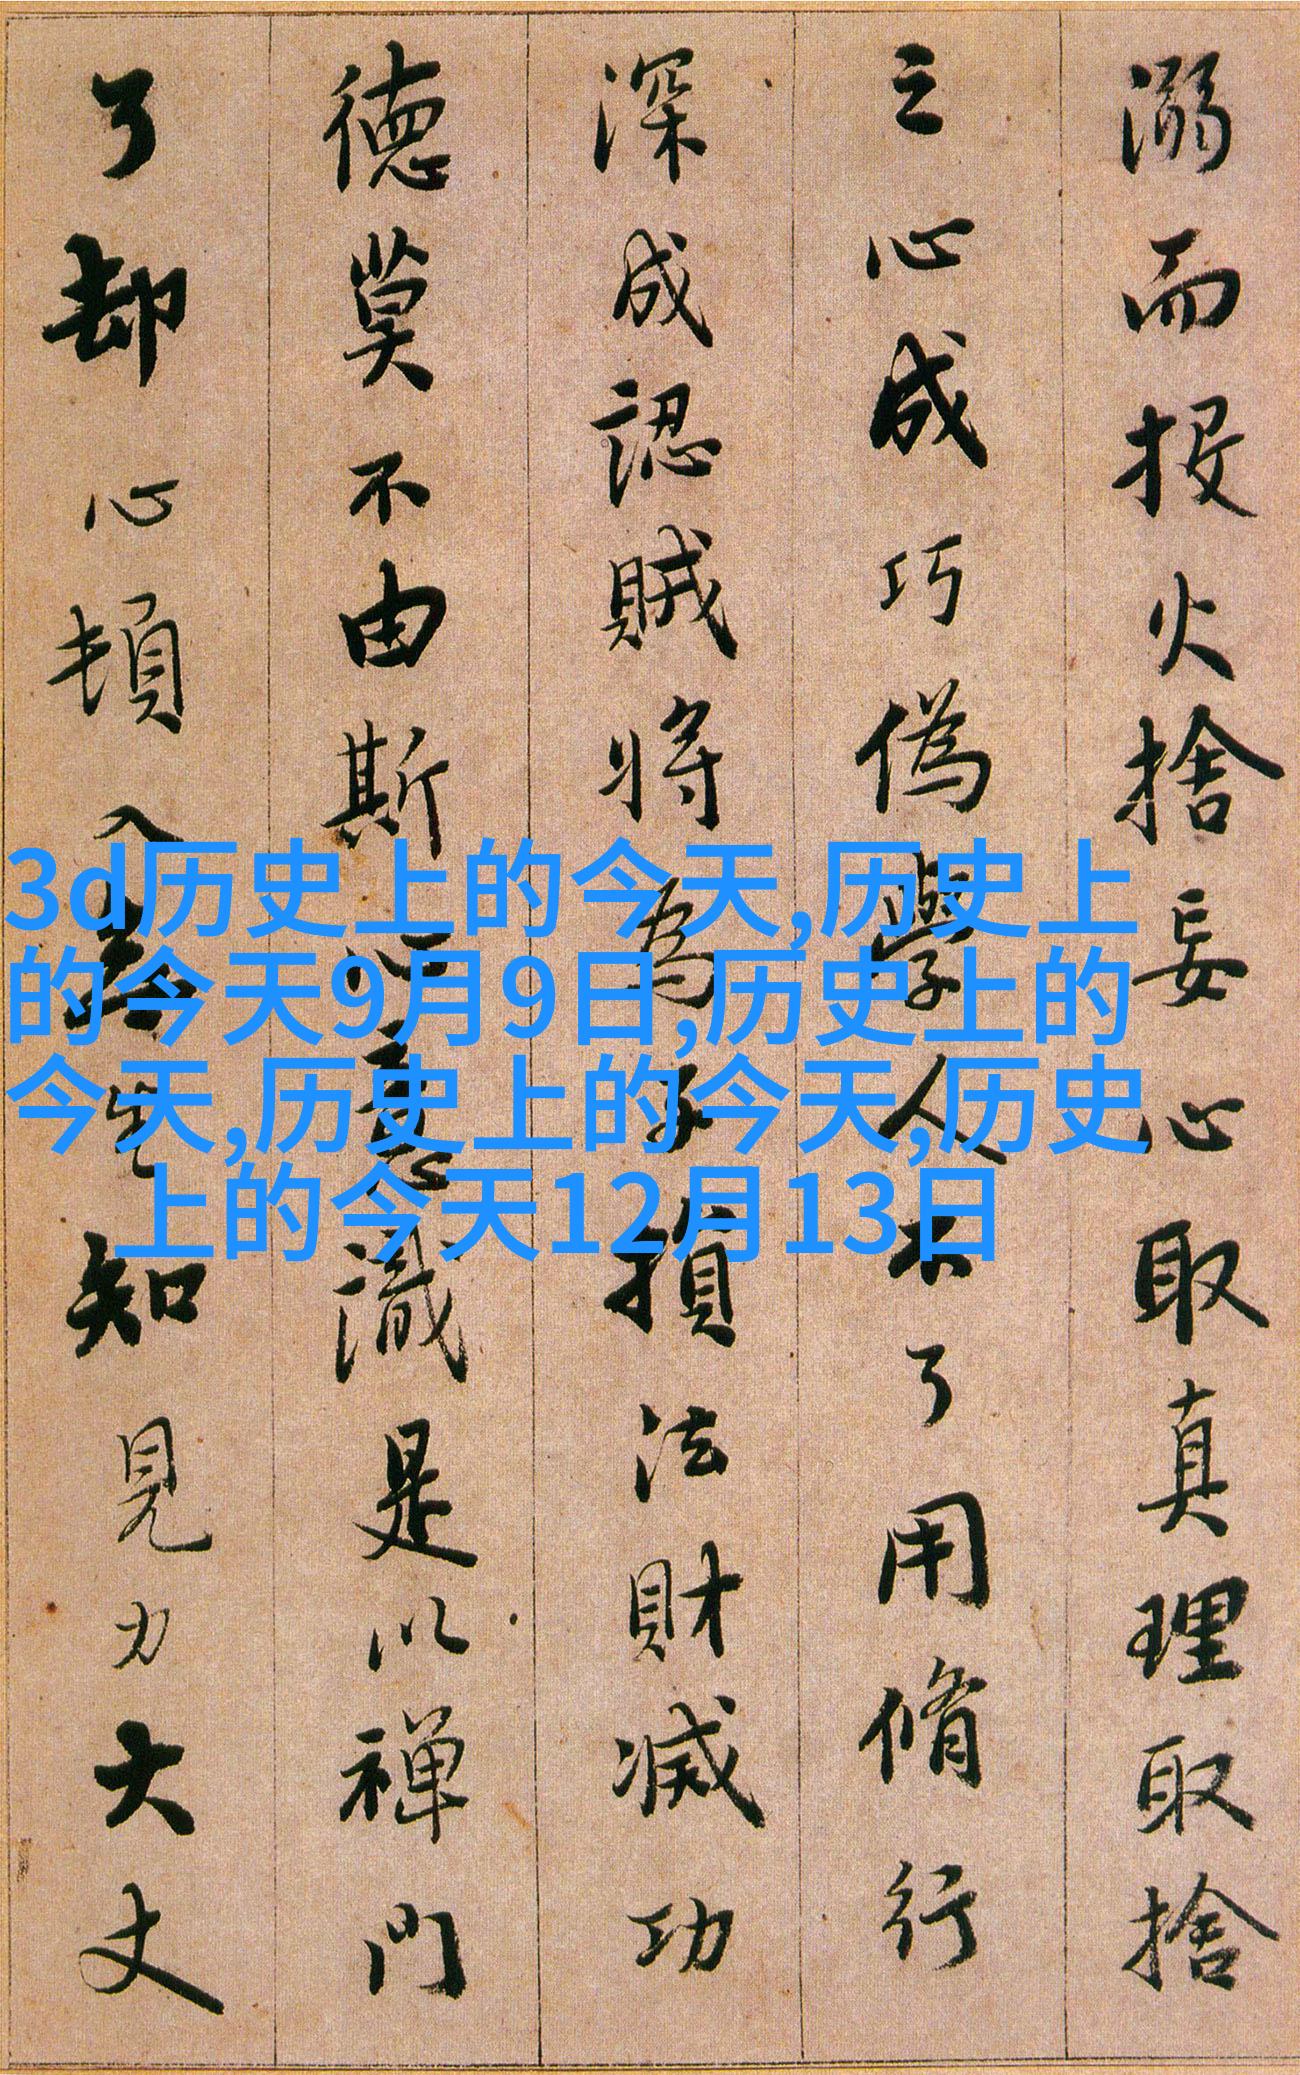 溺而投火捨妄心取真理取捨
之心成巧偽學人不了用脩行
深成認賊將為子損法財滅功
德莫不由斯心意識是以禪門
了却心頓入無生知見力大丈
3d历史上的今天,历史上
的今天9月9日,历史上的
今天,历史上的今天,历史
上的今天12月13日